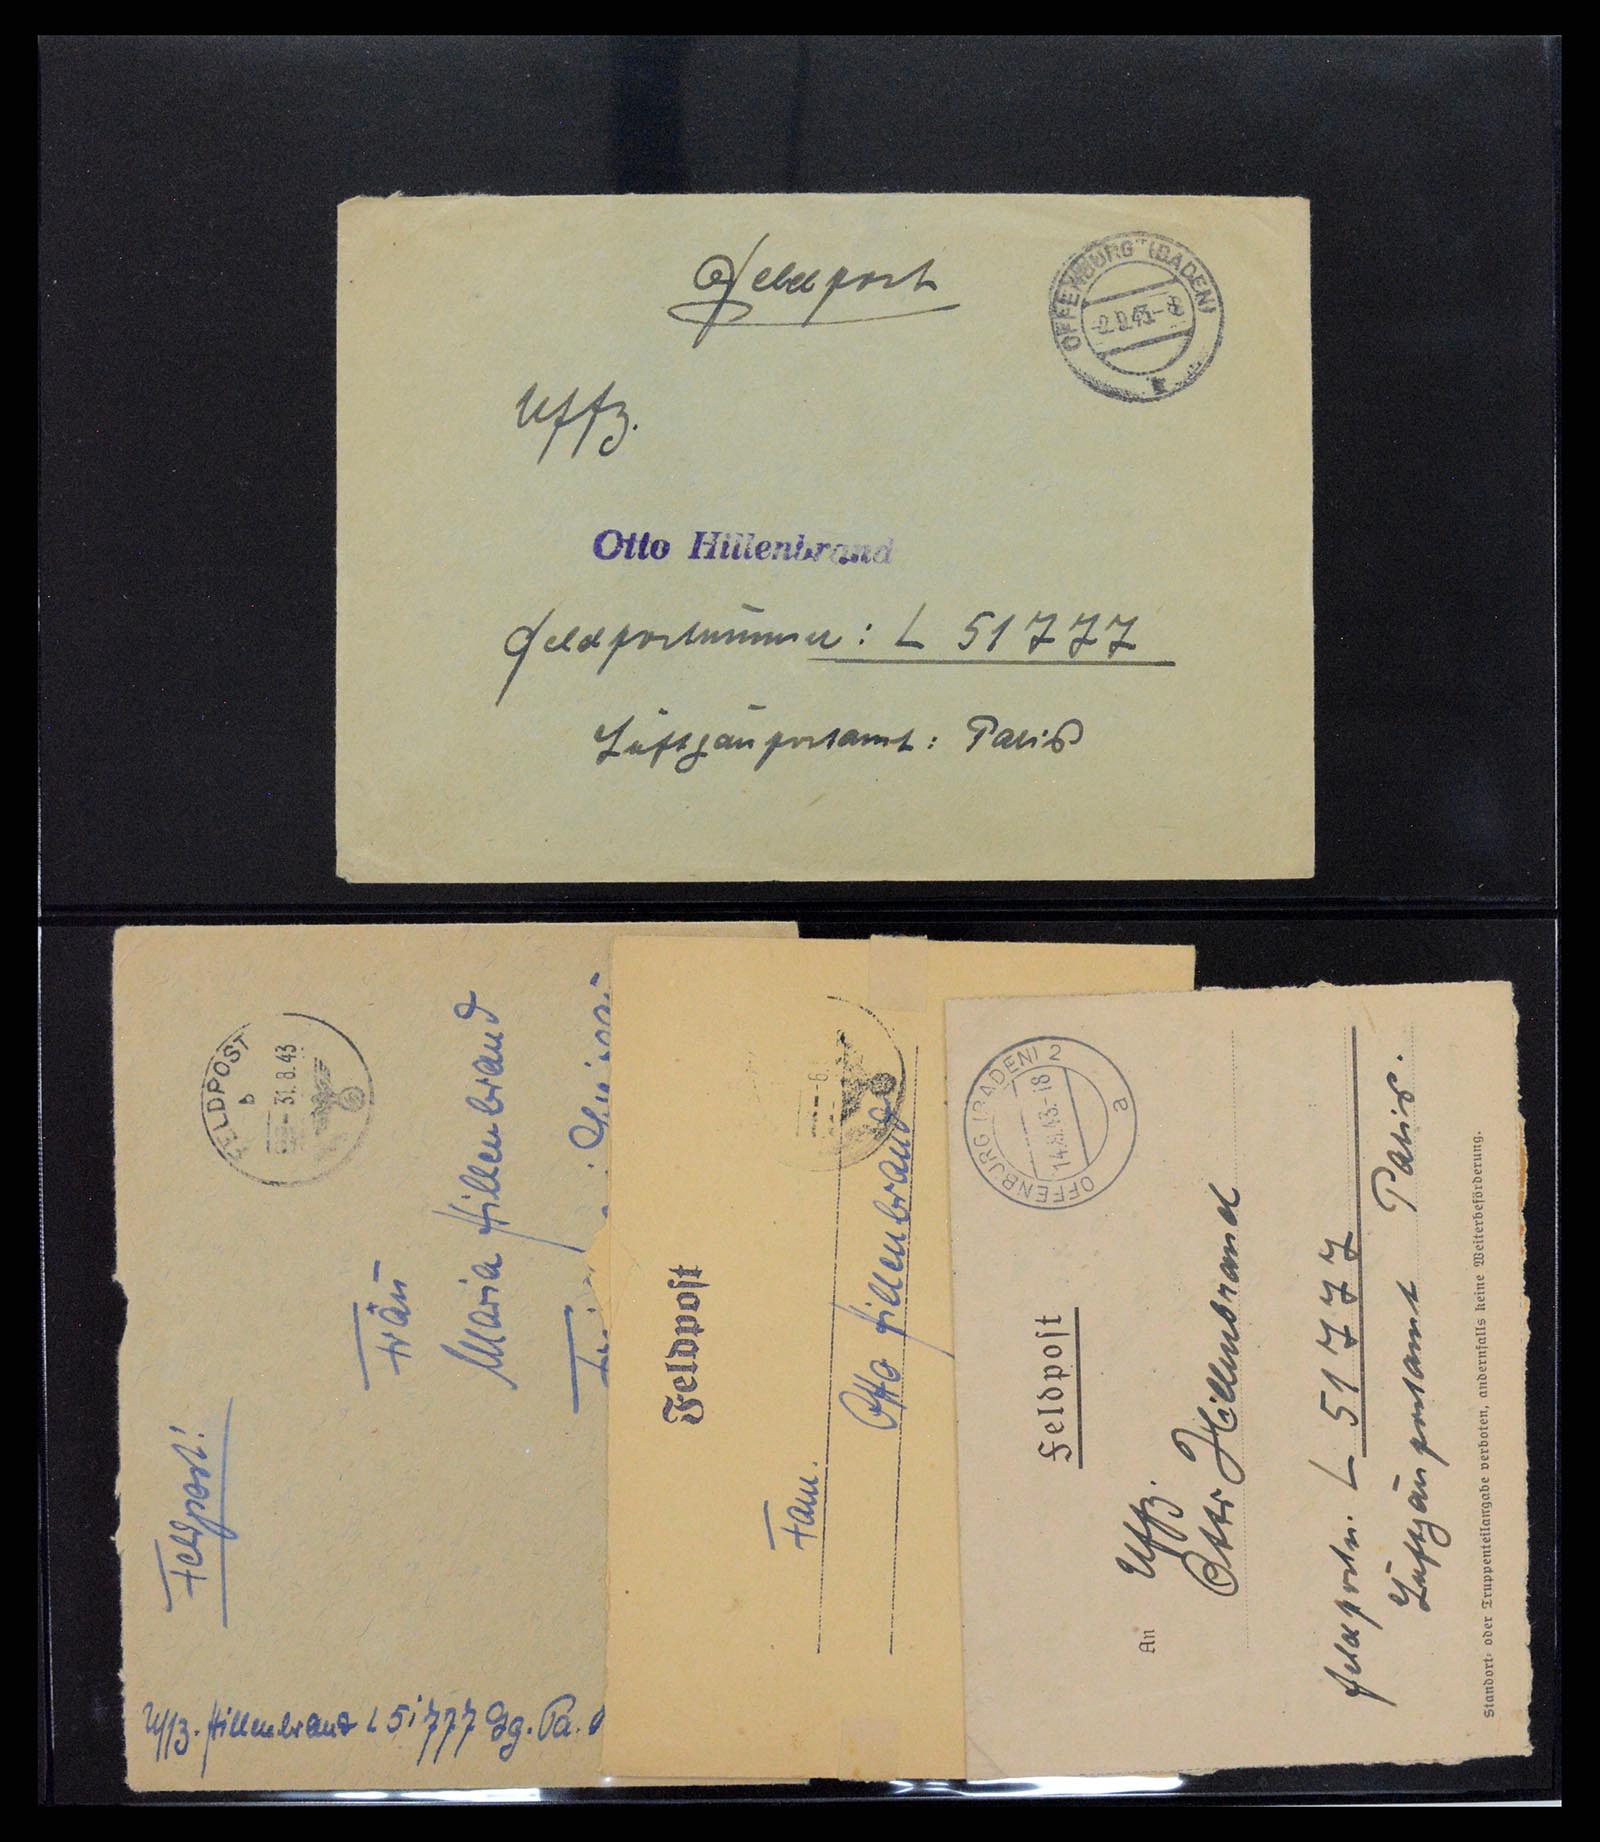 Feldpost
OFFENBURG (BADEN)
2.9.43.-8
Uffz.
Otto Hillenbrand
Feldpostnummer: L 51777
Luftgaupostamt: Paris
FELDPOST
b
31.8.43
Feldpost!
Frau
Maria Hillenbrand
Uffz. Hillenbrand L 51777 Lg. Pa.
Feldpost
Fam.
Otto Hillenbrand
OFFENBURG (BADEN) 2
14.8.43.-18
a
Feldpost
An
Uffz.
Otto Hillenbrand
Feldpostn. L 51777
Luftgaupostamt Paris.
Standort- oder Truppenteilangabe verboten, andernfalls keine Weiterbeförderung.